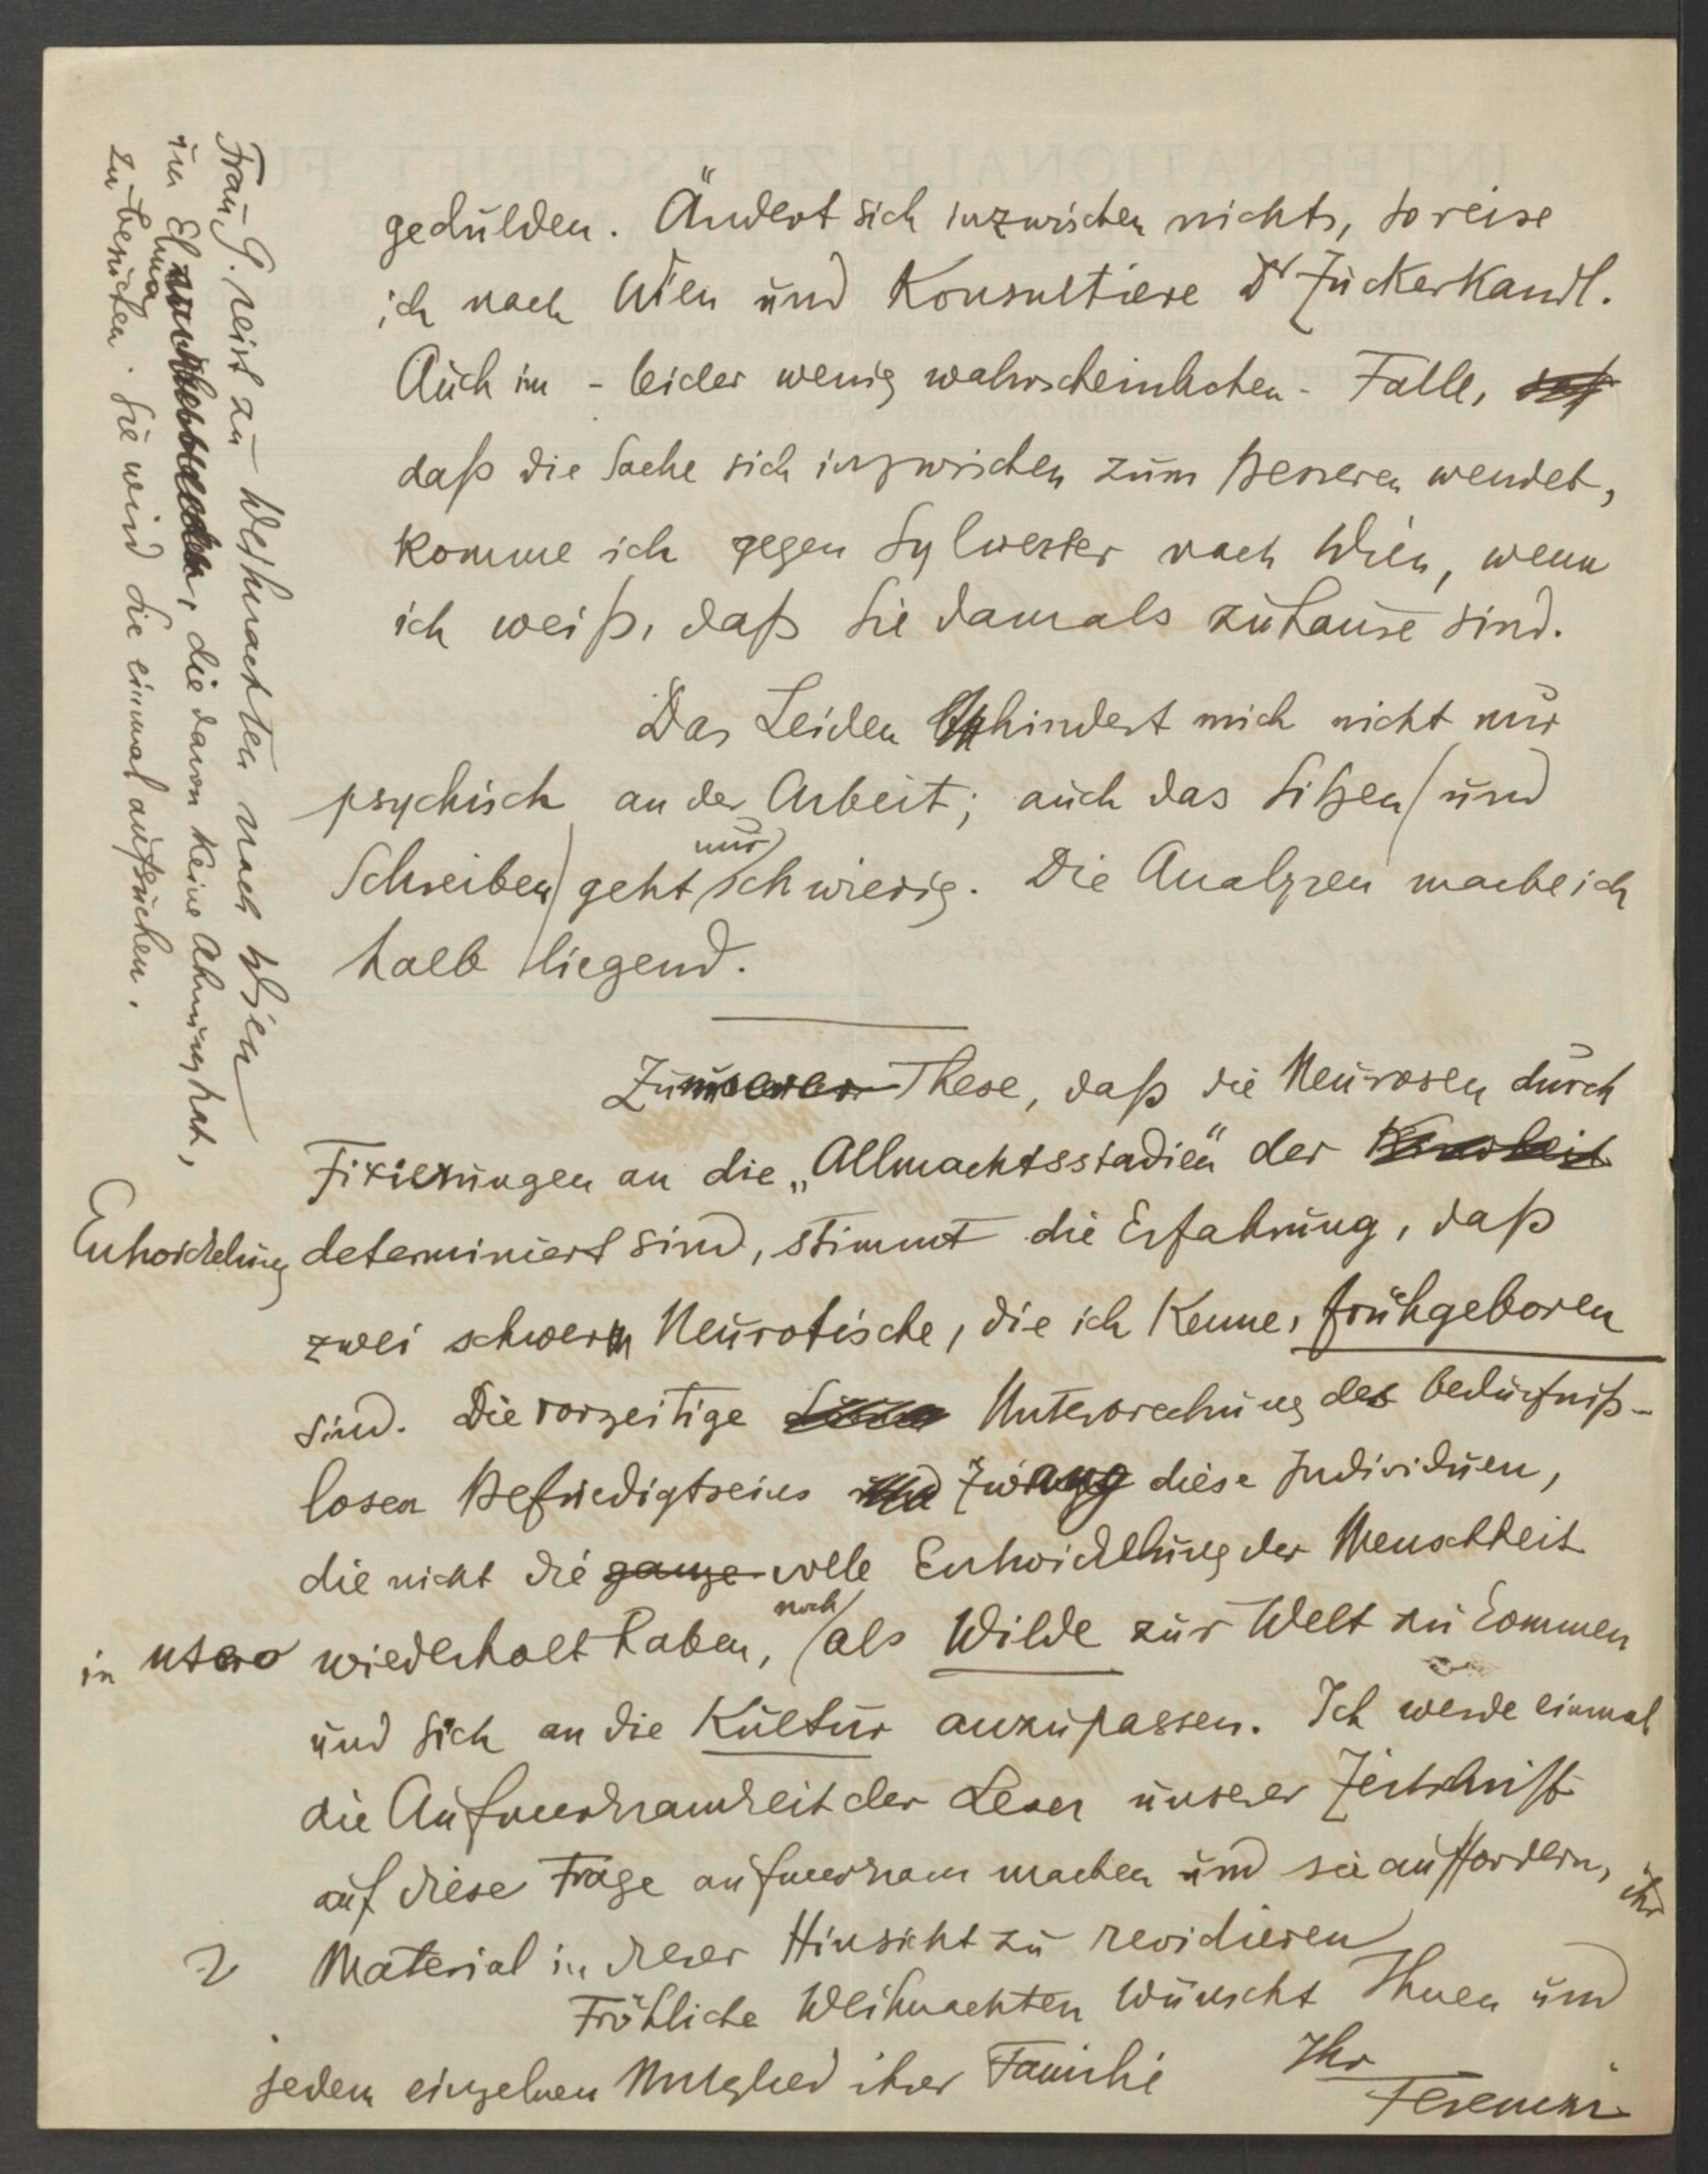 gedulden. Ändert sich inzwischen nichts, so reise
ich nach Wien und konsultiere Dr Zuckerkandl.
Auch im - leider wenig wahrscheinlichen - Falle,
daß die Sache sich inzwischen zum Besseren wendet,
komme ich gegen Sylvester nach Wien, wenn
ich weiß, daß Sie damals zuhause sind.
Das Leiden hindert mich nicht nur
psychisch an der Arbeit; auch das Sitzen (und
Schreiben) geht nur schwierig. Die Analysen mache ich
halb liegend.
Zu unserer These, daß die Neurosen durch
Fixierungen an die „Allmachtsstadien“ der
Entwickelung determiniert sind, stimmt die Erfahrung, daß
zwei schwer Neurotische, die ich kenne, frühgeboren
sind. Die vorzeitige Unterbrechung des bedürfniß-
losen Befriedigtseins zwang diese Individuen,
die nicht die ganze volle Entwicklung der Menschheit
in utero wiederholt haben, noch als Wilde zur Welt zu kommen
und sich an die Kultur anzupassen. Ich werde einmal
die Aufmerksamkeit der Leser unserer Zeitschrift
auf diese Frage aufmerksam machen und sie auffordern, ihr
Material in dieser Hinsicht zu revidieren
Fröhliche Weihnachten wünscht Ihnen und
jedem einzelnen Mitglied ihrer Familie Ihr
Ferenczi
Frau G. reist zu Weihnachten nach Wien
um Elma, die davon keine Ahnung hat,
zu besuchen. Sie wird Sie einmal aufsuchen.